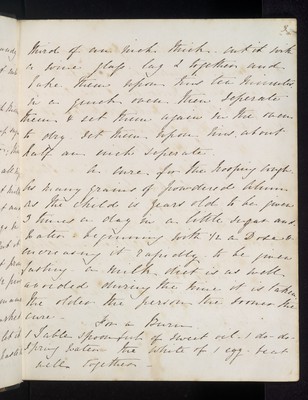 third of an inch thick. cut it with
a wine glass lay 2 together and
bake them upon tins ten minutes
in a quick oven then seperate
them & set them again in the oven
to dry. Set them upon tins about
half an inch seperate
A cure for the Hooping cough
As many grains of powdered Alum
as the child is years old to be given
3 times a day in a little sugar and
water beginning with 1/2 a Dose &
increasing it rapidly to be given
fasting a milk diet is as well
avoided during the time it is taken
the older the person the sooner the
cure.
For a Burn
1 Table spoonful of sweet oil. 1 do. do.
Spring water the white of 1 egg. beat
well together